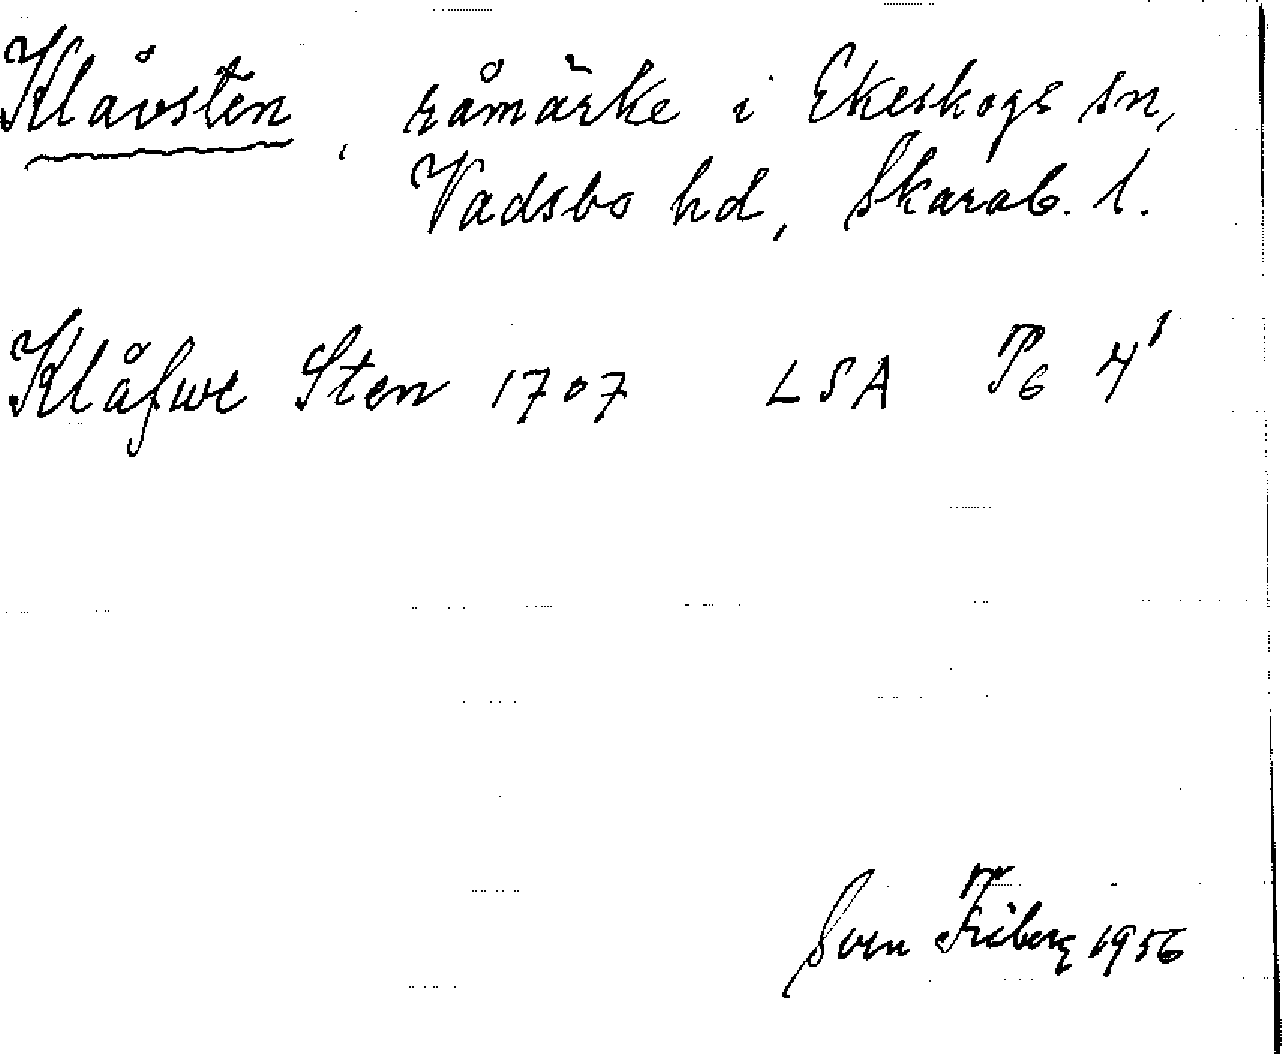 Klåvsten, råmärke i Ekeskogs sn,
Vadsbo hd, Skarab. l.
Klåfwe Sten 1707 LSA P6 4¹
Sven Friberg 1956